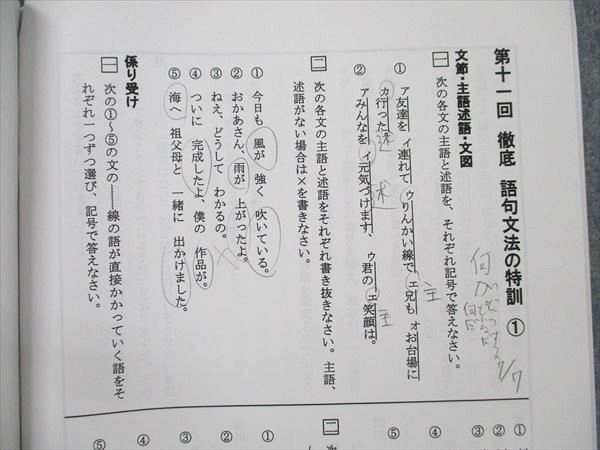 第十一回 徹底 語句文法の特訓 ①
何が
どうする
何だ
7/7
文節・主語述語・文図
一 次の各文の主語と述語を、それぞれ記号で答えなさい。
① ア友達を イ連れて ウりんかい線で エ兄も オお台場に
主
カ行った。
述
② アみんなを イ元気づけます、 ウ君の エ笑顔は。
述 主
二 次の各文の主語と述語をそれぞれ書き抜きなさい。主語、
述語がない場合は×を書きなさい。
① 今日も 風が 強く 吹いている。
② おかあさん、雨が 上がったよ。
③ ねえ、どうして わかるの。
④ ついに 完成したよ、僕の 作品が。
⑤ 海へ 祖父母と 一緒に 出かけました。
係り受け
一 次の①～⑤の文の線の語が直接かかっていく語をそ
れぞれ一つずつ選び、記号で答えなさい。
①
②
③
④
⑤
二
①
②
③
④
⑤